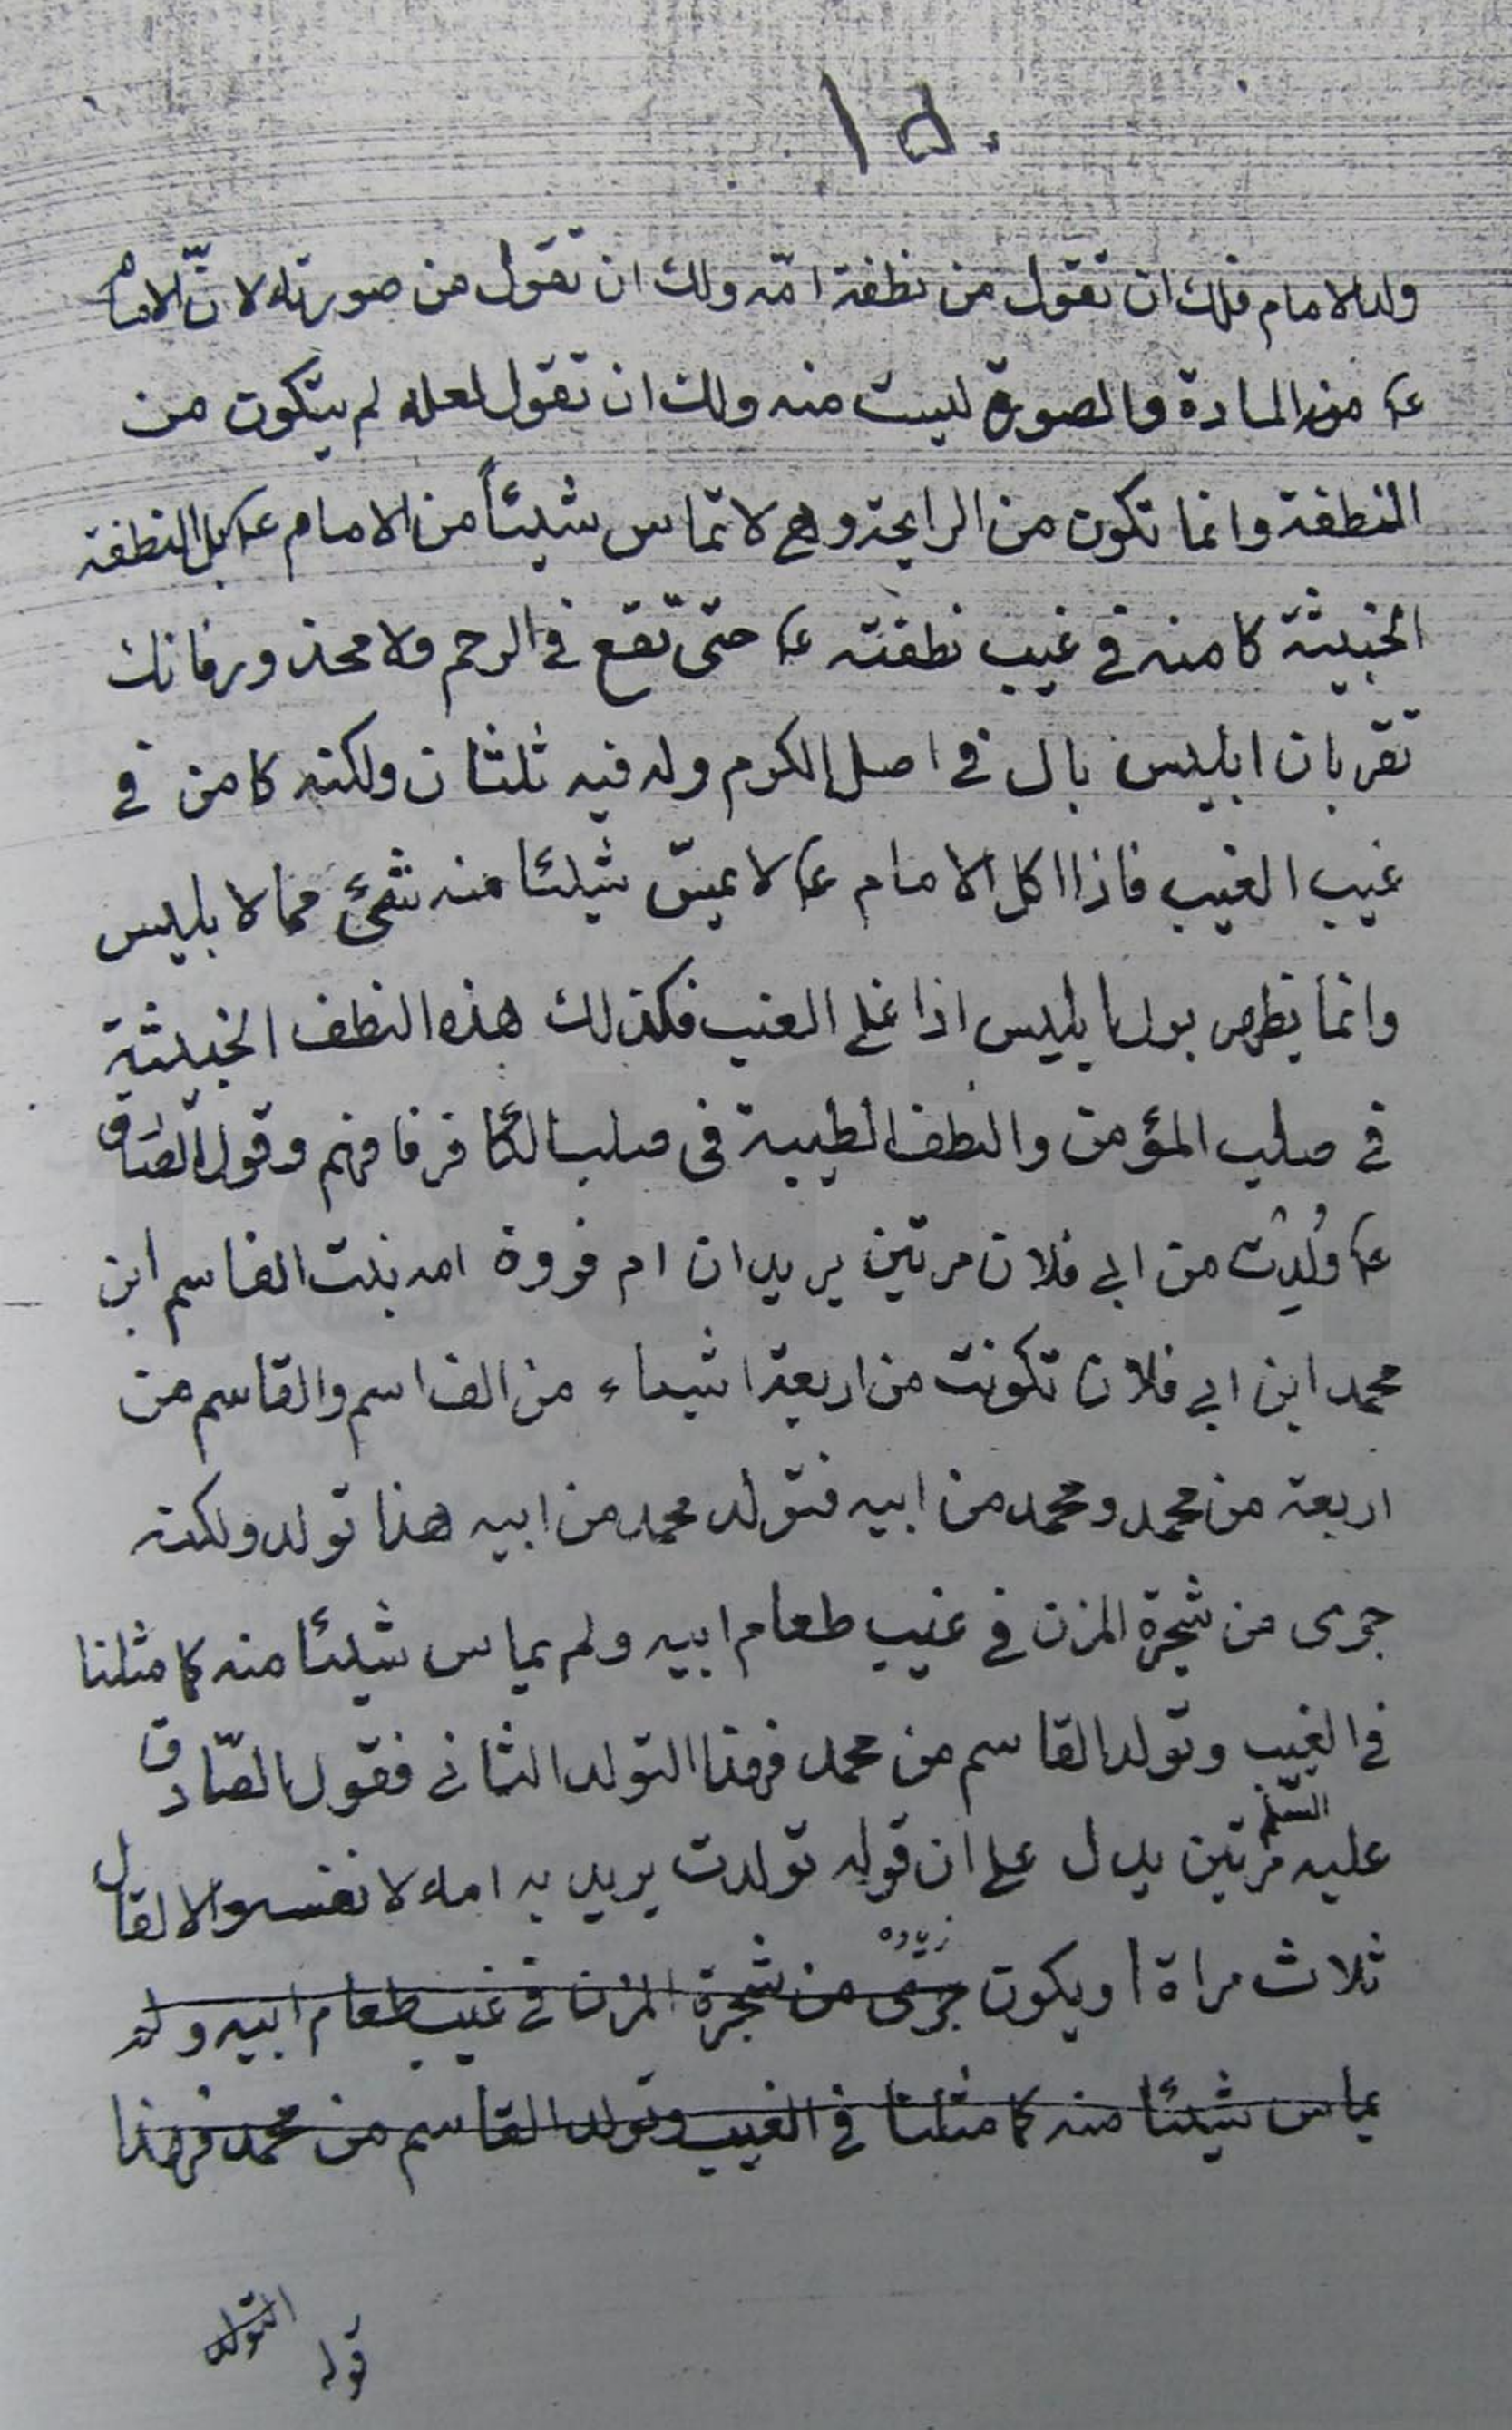 ١٥٠
ولد الامام فلك ان تقول من نطفة امّه ولك ان تقول من صورته لانّ الامام
ع من المادة والصورة ليست منه ولك ان تقول لعله لم يتكون من
النطفة وانما تكون من الرايحة وهي لا تماس شيئاً من الامام ع بل النطفة
الخبيثة كامنه في غيب نطفته ع حتى تقع في الرحم ولا محذور فانك
تقر بان ابليس بال في اصل الكرم وله فيه ثلثان ولكنه كامن في
غيب الغيب فاذا اكل الامام ع لا يمسّ شيئا منه شئ مما لابليس
وانما يظهر بول ابليس اذا غلى العنب فكذلك هذه النطف الخبيثة
في صلب المؤمن والنطف الطيبة في صلب الكافر فافهم وقول الصّادق
ع وُلِدْتُ من ابي فلان مرتين يريد ان ام فروة امه بنت القاسم ابن
محمد ابن ابي فلان تكونت من اربعة اشياء من القاسم والقاسم من
اربعة من محمد ومحمد من ابيه فتولد محمد من ابيه هذا تولد ولكنه
جرى من شجرة المزن في غيب طعام ابيه ولم يماس شيئا منه كما مثلنا
في الغيب وتولد القاسم من محمد فهذا التولد الثاني فقول الصّادق
عليه السّلم مرتين يدل على ان قوله تولدت يريد به امه لا نفسه والا لقال
ثلاث مراة او يكون جرى من شجرة المزن في غيب طعام ابيه ولم
يماس شيئا منه كما مثلنا في الغيب وتولد القاسم من محمد فهذا
التولد
قوله